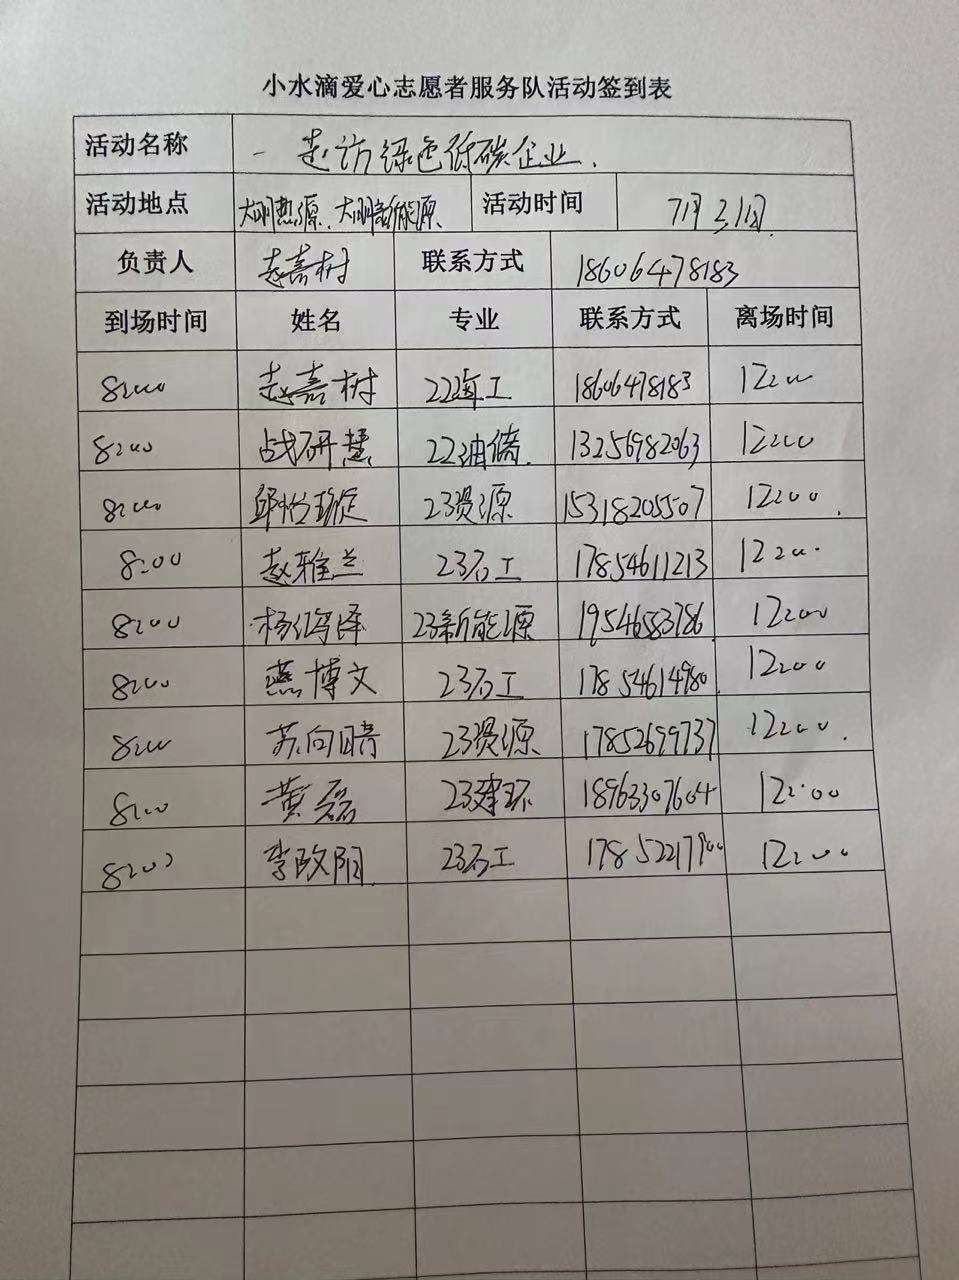 小水滴爱心志愿者服务队活动签到表
活动名称 走访绿色低碳企业.
活动地点 大明热源、大明新能源 活动时间 7月31日.
负责人 赵嘉树 联系方式 18606478183
到场时间 姓名 专业 联系方式 离场时间
8:00 赵嘉树 22海工 18606478183 12:00
8:00 战研慧 22油储. 13256982063 12:00
8:00 邱怡璇 23资源 15318205507 12:00.
8:00 赵雅兰 23石工 17854611213 12:00.
8:00 23新能源 19546583786 12:00
8:00 燕博文 23石工 17854614980. 12:00
8:00 苏向晴 23资源 17852699737 12:00.
8:00 黄磊 23建环 18963307604 12:00
8:00 李政阳. 23石工 17852217900 12:00